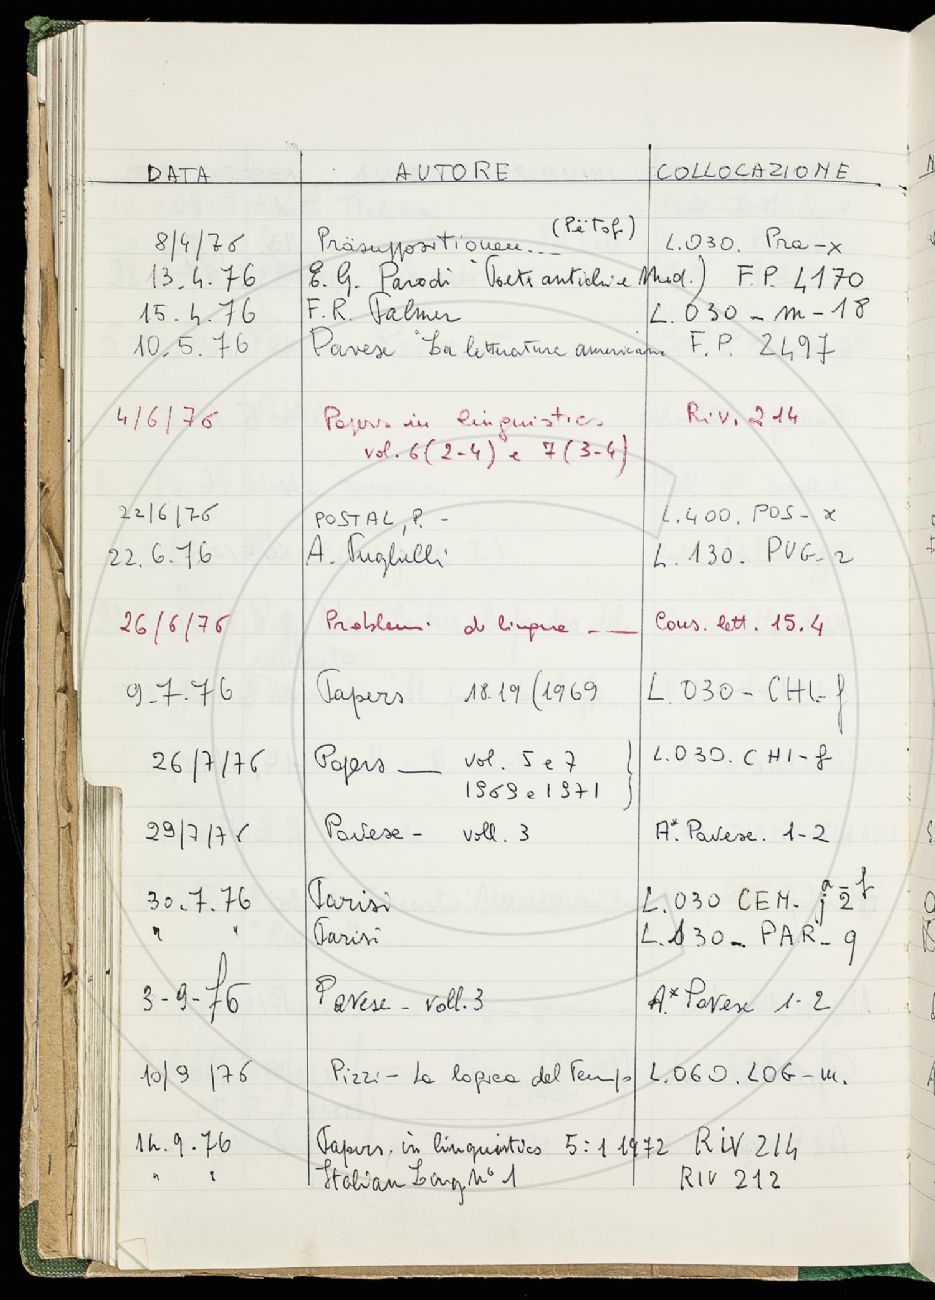 DATA AUTORE COLLOCAZIONE
8/4/76 Präsuppositionen... (Petöfi) L.030. Pra-x
13.4.76 E. G. Parodi "Poeti antichi e Mod.) F.P. 4170
15.4.76 F.R. Palmer L.030-m-18
10.5.76 Pavese "La letteratura americana F.P. 2497
4/6/76 Papers in linguistics Riv. 214
vol. 6(2-4) e 7(3-4)
22/6/76 POSTAL, P. - L.400. POS-x
22.6.76 A. Puglielli L.130. PUG-2
26/6/76 Problemi di lingua — Cons. lett. 15.4
9.7.76 Papers 18.19 (1969 L.030-CHI-f
26/7/76 Papers — vol. 5 e 7 L.030. CHI-f
1969 e 1971
29/7/76 Pavese - voll. 3 A*. Pavese. 1-2
30.7.76 Parisi L.030 CEM-
" " Parisi L.130-PAR-9
3-9-76 Pavese - voll. 3 A* Pavese 1-2
10/9/76 Pizzi - La logica del Tempo L.060.LOG-m.
14.9.76 Papers in linguistics 5:1 1972 RIV 214
" " Italian Ling N° 1 RIV 212